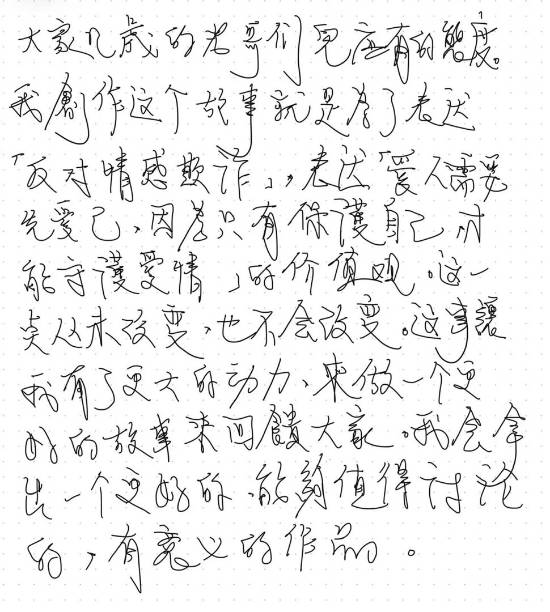 大家几歲的老哥们兒应有的態度。
我創作这个故事就是為了表达
「反对情感欺诈」,表达「爱人需要
先愛己、因為只有保護自己才
能守護愛情」的价值观。这一
点从未改变,也不会改变。这事讓
我有了更大的动力、来做一个更
好的故事来回饋大家。我会拿
出一个更好的、能夠值得讨论
的,有意义的作品。